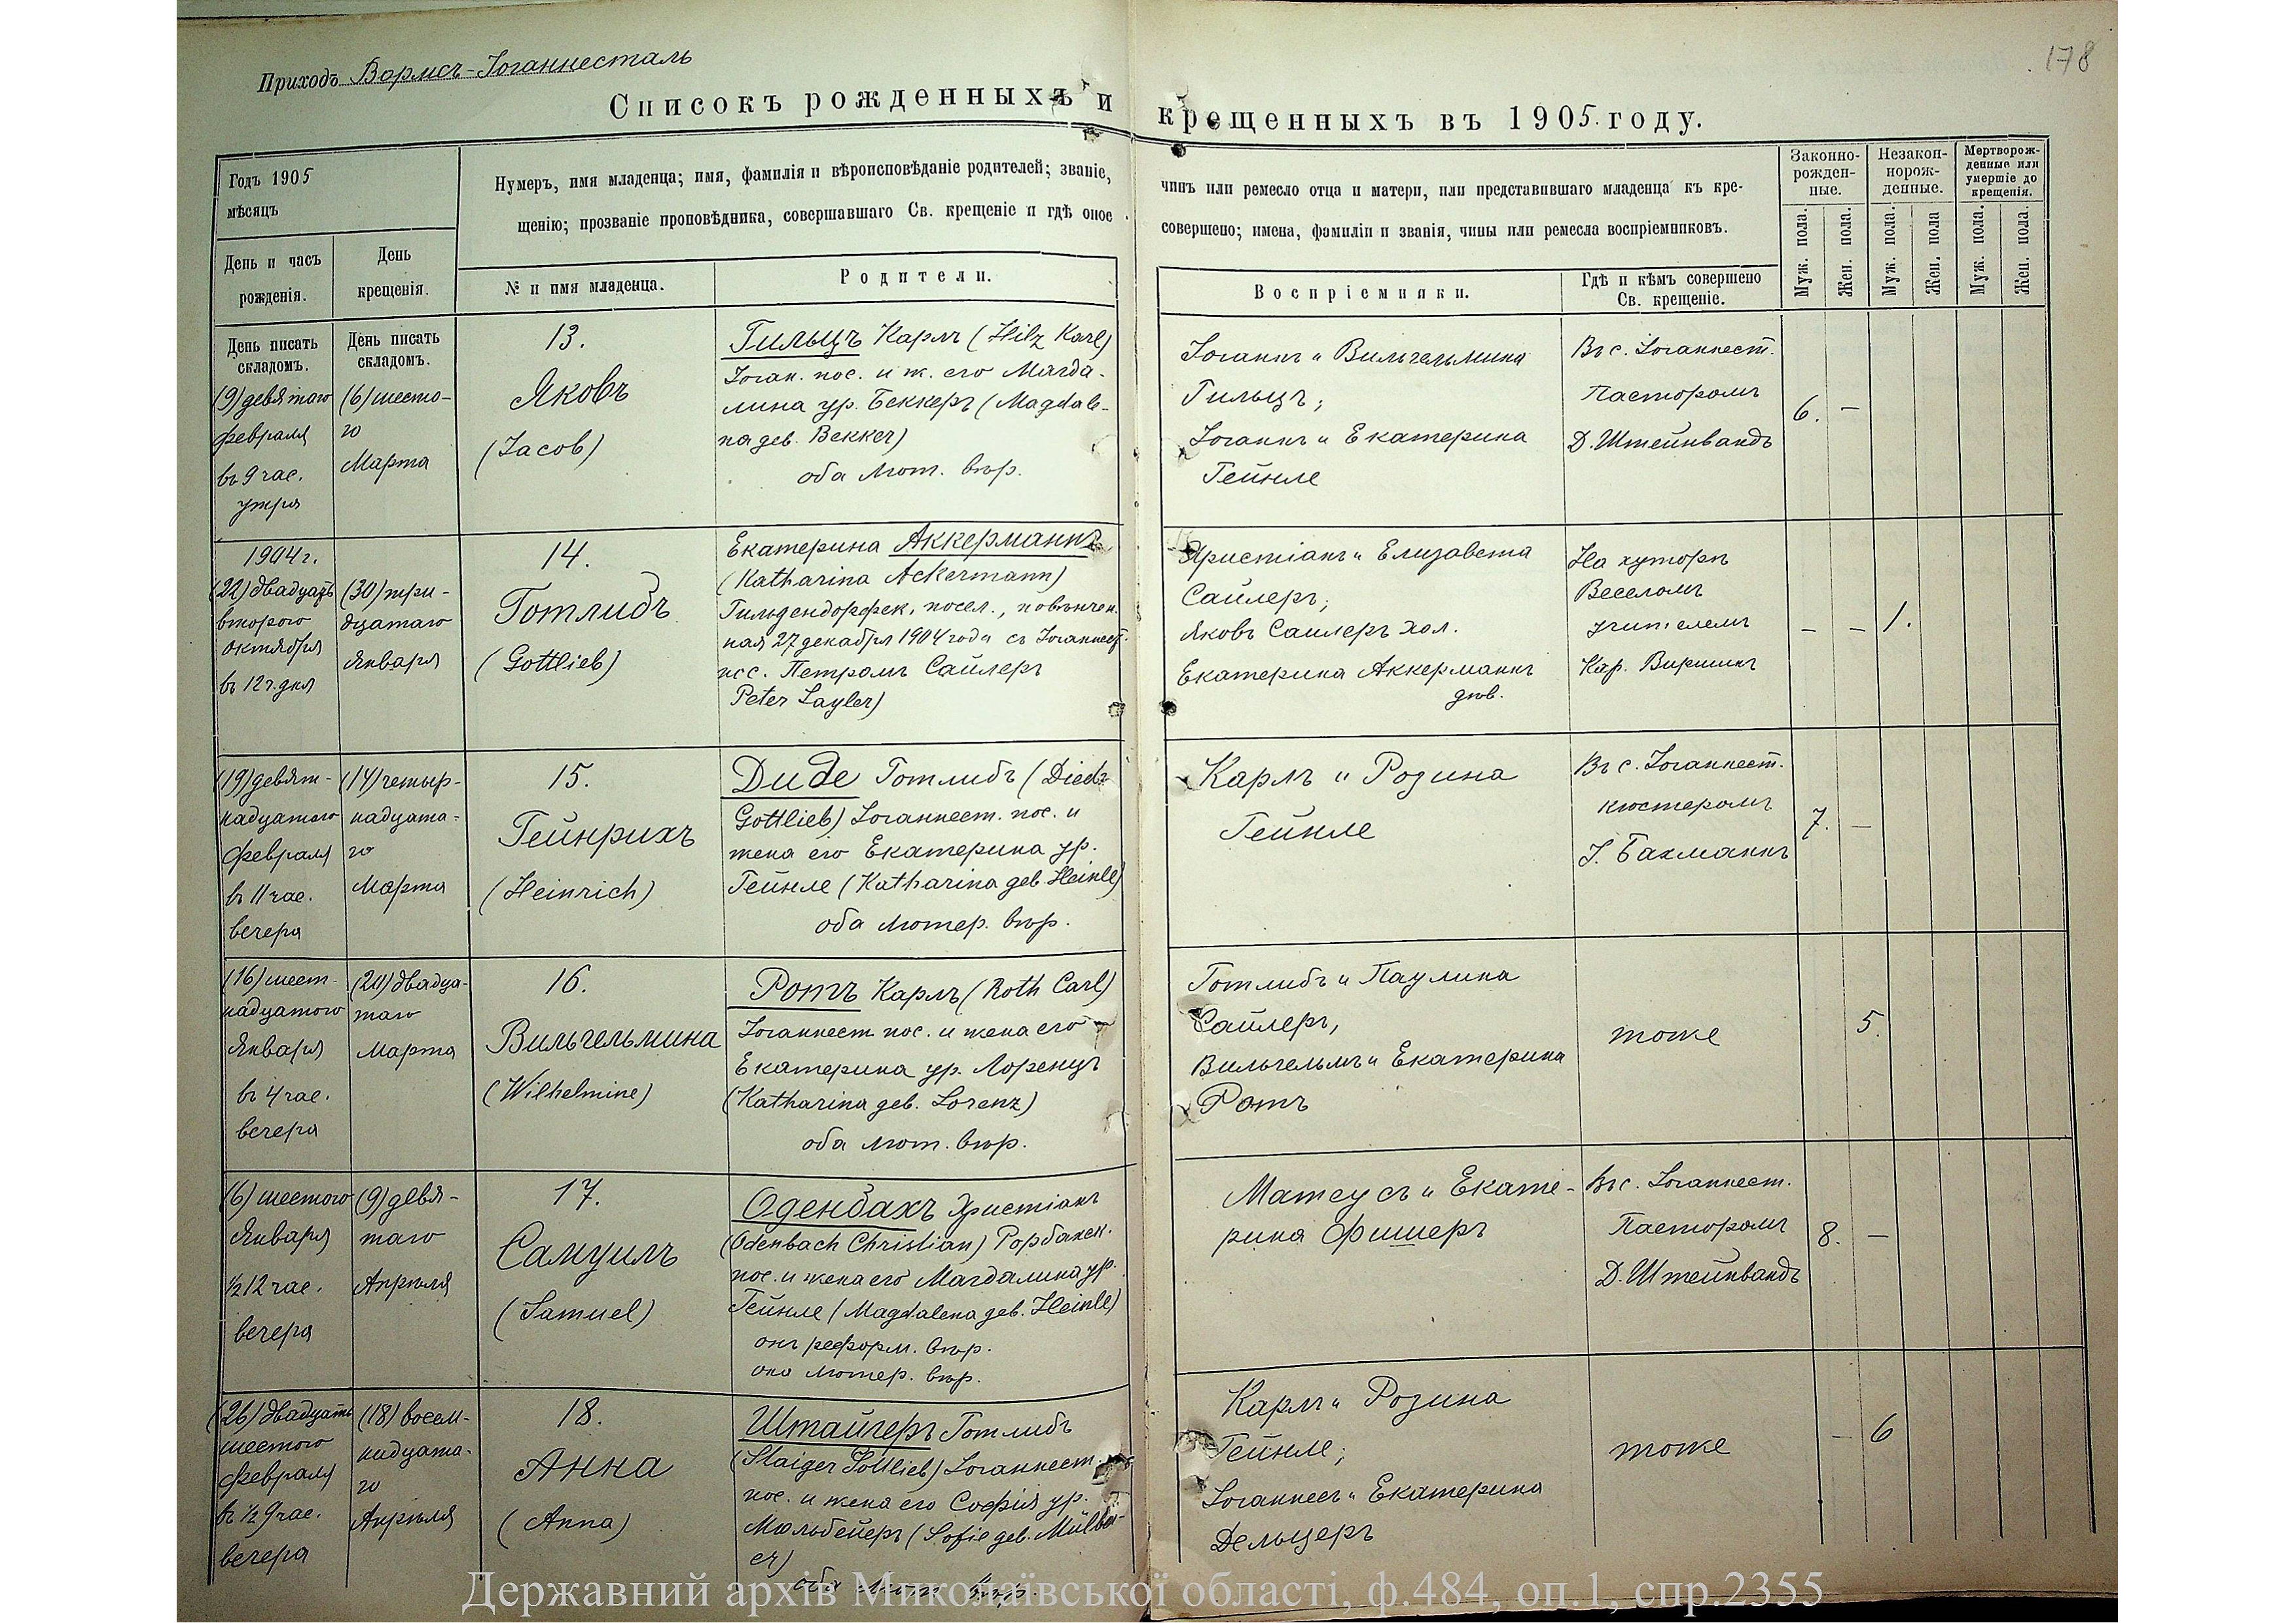 178
Приходъ Вормсъ-Іоганнесталь
Списокъ рожденныхъ и крещенныхъ въ 1905. году.
Годъ 1905
мѣсяцъ
Нумеръ, имя младенца; имя, фамилія и вѣроисповѣданіе родителей; званіе,
щенію; прозваніе проповѣдника, совершавшаго Св. крещеніе и гдѣ оное
чинъ или ремесло отца и матери, или представившаго младенца къ кре-
совершено; имена, фамиліи и званія, чины или ремесла воспріемниковъ.
Законно-
рожден-
ные.
Незакон-
норож-
денные.
Мертворож-
денные или
умершіе до
крещенія.
День и часъ
рожденія.
День
крещенія.
№ и имя младенца.
Родители.
Воспріемники.
Гдѣ и кѣмъ совершено
Св. крещеніе.
Муж. пола.
Жен. пола.
Муж. пола.
Жен. пола
Муж. пола.
Жен. пола.
День писать
складомъ.
День писать
складомъ.
(9) девятаго
февраля
въ 9 час.
утра
(6) шесто-
го
Марта
13.
Яковъ
(Jacob)
Гильцъ Карлъ (Hilz Karl)
Іоган. пос. и ж. его Магда-
лина ур. Беккеръ (Magdale-
na geb. Bekker)
оба лют. вѣр.
Іоганнъ и Вильгельмина
Гильцъ;
Іоганнъ и Екатерина
Гейнле
Въ с. Іоганнест.
Пасторомъ
Д. Штейнвандъ
6. –
1904 г.
(22) двадцать
второго
октября
въ 12 ч. дня
(30) три-
дцатаго
Января
14.
Готлибъ
(Gottlieb)
Екатерина Аккерманнъ
(Katharina Ackermann)
Гильдендорфек. посел., повѣнчен.
ная 27 декабря 1904 года съ Іоганнест.
пос. Петромъ Сайлеръ
Peter Sayler)
Христіанъ и Елизавета
Сайлеръ;
Яковъ Сайлеръ хол.
Екатерина Аккерманнъ
дѣв.
На хуторѣ
Веселомъ
учителемъ
Кар.
– – 1.
(19) девят-
надцатаго
февраля
въ 11 час.
вечера
(14) четыр-
надцата-
го
Марта
15.
Гейнрихъ
(Heinrich)
Диде Готлибъ (Diede
Gottlieb) Іоганнест. пос. и
жена его Екатерина ур.
Гейнле (Katharina geb. Heinle)
оба лютер. вѣр.
Карлъ и Розина
Гейнле
Въ с. Іоганнест.
кюстеромъ
І. Бахманнъ
7. –
(16) шест-
надцатаго
Января
въ 4 час.
вечера
(20) двадца-
таго
Марта
16.
Вильгельмина
(Wilhelmine)
Ротъ Карлъ (Roth Carl)
Іоганнест. пос. и жена его
Екатерина ур. Лоренцъ
(Katharina geb. Lorenz)
оба лют. вѣр.
Готлибъ и Паулина
Сайлеръ,
Вильгельмъ и Екатерина
Ротъ
тоже
5.
(6) шестого
Января
½12 час.
вечера
(9) девя-
таго
Апрѣля
17.
Самуилъ
(Samuel)
Оденбахъ Христіанъ
(Odenbach Christian) Рорбахск.
пос. и жена его Магдалина ур.
Гейнле (Magdalena geb. Heinle)
онъ реформ. вѣр.
она лютер. вѣр.
Матеусъ и Екате-
рина Фишеръ
Въ с. Іоганнест.
Пасторомъ
Д. Штейнвандъ
8. –
(26) двадцать
шестого
февраля
въ ½ 9 час.
вечера
(18) восем-
надцата-
го
Апрѣля
18.
Анна
(Anna)
Штайгеръ Готлибъ
(Staiger Gottlieb) Іоганнест.
пос. и жена его Софія ур.
Мюльбейеръ (Sofie geb. Mülbei-
er)
оба лют. вѣр.
Карлъ и Розина
Гейнле;
Іоганнесъ и Екатерина
Дельцеръ
тоже
– 6
Державний архів Миколаївської області, ф.484, оп.1, спр.2355